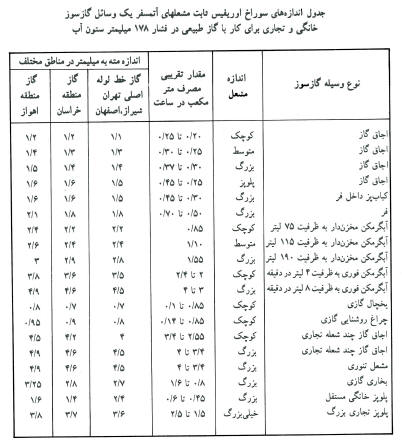 جدول اندازه‌های سوراخ اوریفیس ثابت مشعلهای آتمسفر یک وسائل گازسوز
خانگی و تجاری برای کار با گاز طبیعی در فشار ۱۷۸ میلیمتر ستون آب
نوع وسیله گازسوز | اندازه مشعل | مقدار تقریبی مصرف متر مکعب در ساعت | اندازه مته به میلیمتر در مناطق مختلف
گاز خط لوله اصلی تهران شیراز،اصفهان | گاز منطقه خراسان | گاز منطقه اهواز
اجاق گاز کوچک ۰/۲۰ تا ۰/۲۵ ۱/۱ ۱/۲ ۱/۲
اجاق گاز متوسط ۰/۲۵ تا ۰/۳۰ ۱/۳ ۱/۳ ۱/۴
اجاق گاز بزرگ ۰/۳۰ تا ۰/۳۷ ۱/۴ ۱/۴ ۱/۵
اجاق گاز پلوپز ۰/۲۵ تا ۰/۴۵ ۱/۵ ۱/۶ ۱/۶
کباب‌پز داخل فر بزرگ ۰/۳۰ تا ۰/۴۵ ۱/۵ ۱/۶ ۱/۶
فر بزرگ ۰/۵۰ تا ۰/۷۰ ۱/۸ ۱/۸ ۲/۱
آبگرمکن مخزن‌دار به ظرفیت ۷۵ لیتر کوچک ۰/۸۵ ۲/۲ ۲/۲ ۲/۴
آبگرمکن مخزن‌دار به ظرفیت ۱۱۵ لیتر متوسط ۱/۱۰ ۲/۴ ۲/۴ ۲/۶
آبگرمکن مخزن‌دار به ظرفیت ۱۹۰ لیتر بزرگ ۱/۵۵ ۲/۸ ۲/۹ ۳
آبگرمکن فوری به ظرفیت ۴ لیتر در دقیقه کوچک ۲ تا ۲/۴ ۳/۵ ۳/۶ ۳/۸
آبگرمکن فوری به ظرفیت ۸ لیتر در دقیقه بزرگ ۳ تا ۴ ۴/۵ ۴/۶ ۴/۹
یخچال گازی کوچک ۰/۸۵ تا ۰/۱ ۰/۷ ۰/۷ ۰/۸
چراغ روشنایی گازی کوچک ۰/۸۵ تا ۰/۱۴ ۰/۸ ۰/۹ ۰/۹۵
اجاق گاز چند شعله تجاری کوچک ۲/۵۵ تا ۳/۴ ۴ ۴/۲ ۴/۵
اجاق گاز چند شعله تجاری بزرگ ۳/۴ تا ۴ ۴/۵ ۴/۶ ۴/۹
مشعل تنوری بزرگ ۳/۴ تا ۴ ۴/۵ ۴/۶ ۴/۹
بخاری گازی بزرگ ۰/۸ تا ۱/۶ ۲/۷ ۲/۸ ۳/۲۵
پلوپز خانگی مستقل بزرگ ۰/۴۵ تا ۰/۶ ۲/۴ ۱/۴ ۱/۶
پلوپز تجاری بزرگ خیلی‌بزرگ ۱/۵ تا ۲/۵ ۳/۶ ۳/۷ ۳/۸